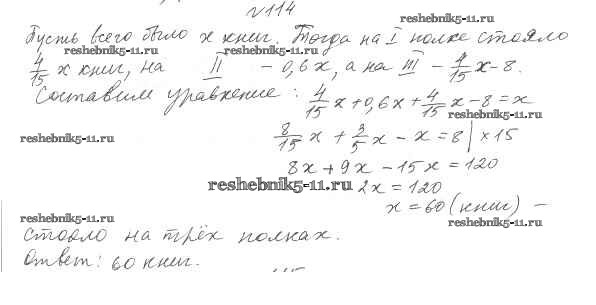 №114
reshebnik5-11.ru
Пусть всего было x книг. Тогда на I полке стояло
reshebnik5-11.ru reshebnik5-11.ru
4/15 x книг, на II - 0,6x, а на III - 4/15 x-8.
Составим уравнение: 4/15 x+0,6x+4/15 x-8=x
reshebnik5-11.ru
reshebnik5-11.ru
8/15 x + 3/5 x - x = 8 | ×15
8x+9x-15x=120
reshebnik5-11.ru 2x=120
x=60 (книг) -
reshebnik5-11.ru reshebnik5-11.ru
стояло на трёх полках.
Ответ: 60 книг.